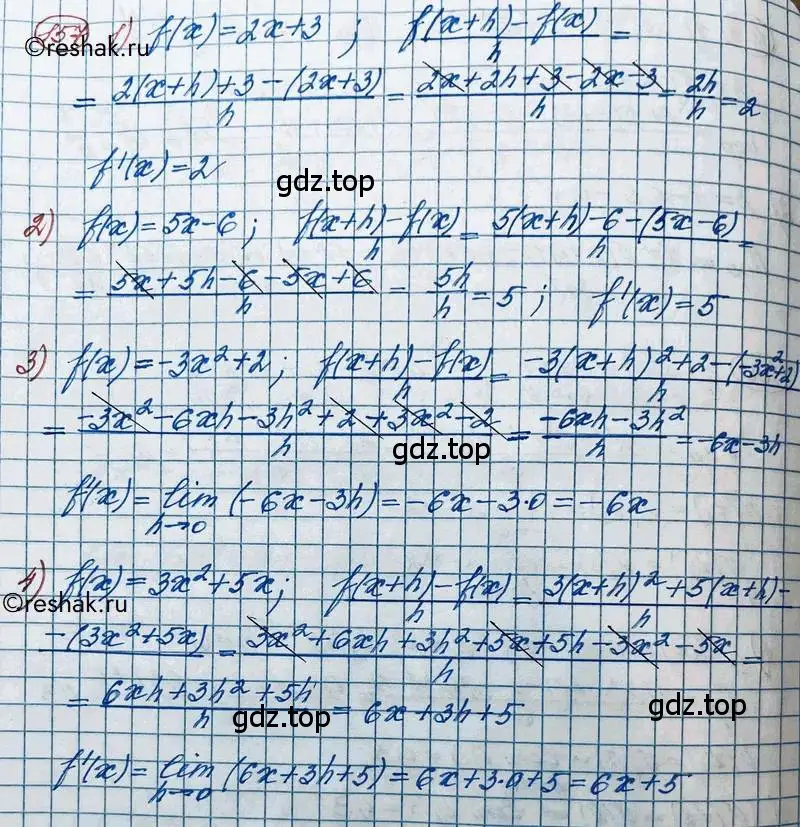 157 1) f(x)=2x+3 ; (f(x+h)-f(x))/h =
©reshak.ru
= (2(x+h)+3-(2x+3))/h = (2x+2h+3-2x-3)/h = 2h/h = 2
f'(x)=2
gdz.top
2) f(x)=5x-6 ; (f(x+h)-f(x))/h = (5(x+h)-6-(5x-6))/h =
= (5x+5h-6-5x+6)/h = 5h/h = 5 ; f'(x)=5
3) f(x)=-3x²+2 ; (f(x+h)-f(x))/h = (-3(x+h)²+2-(-3x²+2))/h
= (-3x²-6xh-3h²+2+3x²-2)/h = (-6xh-3h²)/h = -6x-3h
gdz.top
f'(x)= lim h→0 (-6x-3h)=-6x-3·0=-6x
4) f(x)=3x²+5x ; (f(x+h)-f(x))/h = (3(x+h)²+5(x+h)-
©reshak.ru
-(3x²+5x))/h = (3x²+6xh+3h²+5x+5h-3x²-5x)/h =
= (6xh+3h²+5h)/h = 6x+3h+5
gdz.top
gdz.top
f'(x)= lim h→0 (6x+3h+5)=6x+3·0+5=6x+5